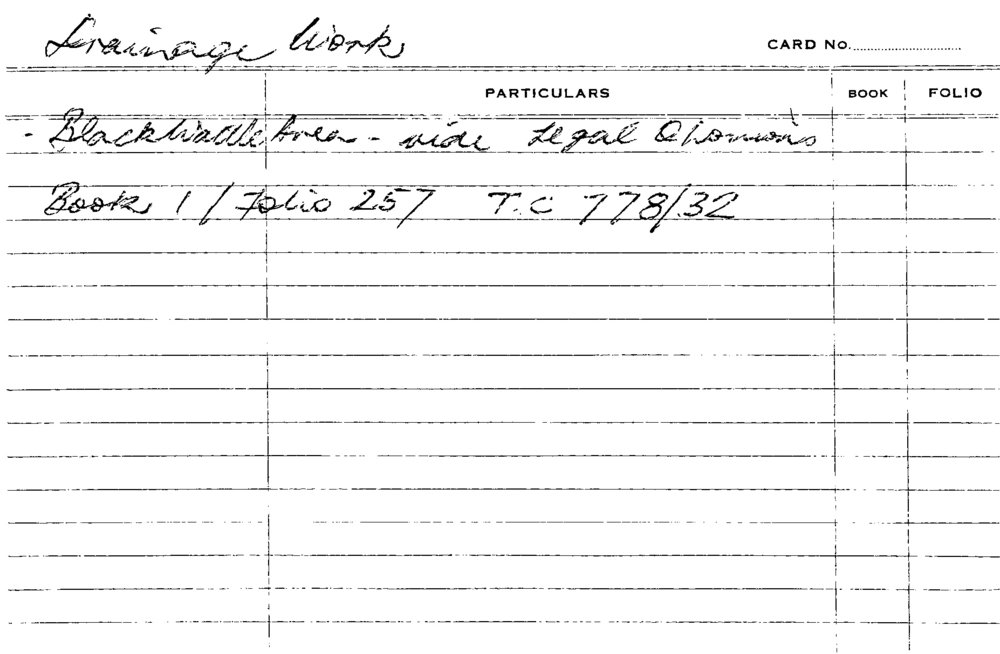 Drainage Work
CARD No.
PARTICULARS BOOK FOLIO
- Blackwattle Area - vide Legal Opinions
Book 1 / Folio 257 T.C 778/32